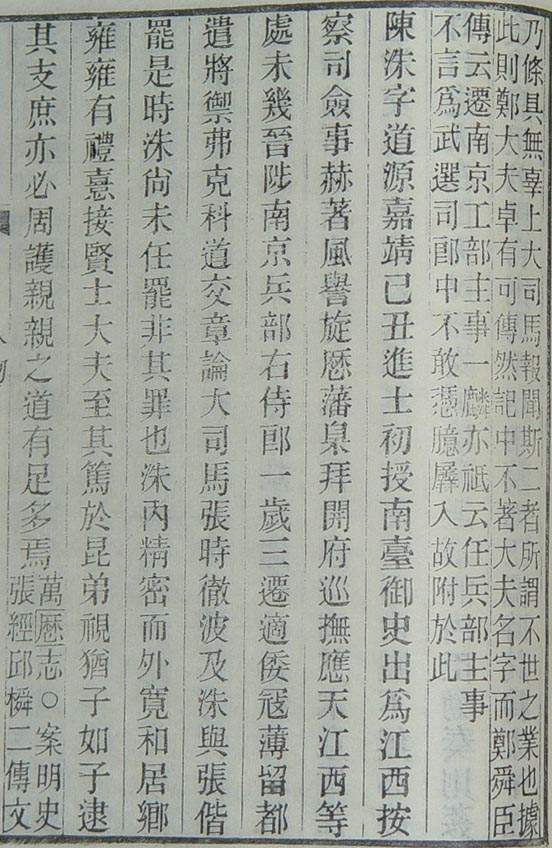 乃條具無辜上大司馬報聞斯二者所謂不世之業也據
此則鄭大夫卓有可傳然記中不著大夫名字而鄭舜臣
傳云遷南京工部主事一麟亦祗云任兵部主事
不言為武選司郎中不敢憑臆羼入故附於此
陳洙字道源嘉靖己丑進士初授南臺御史出為江西按
察司僉事赫著風譽旋歷藩臬拜開府巡撫應天江西等
處未幾晉陟南京兵部右侍郎一歲三遷適倭寇薄留都
遣將禦弗克科道交章論大司馬張時徹波及洙與張偕
罷是時洙尚未任罷非其罪也洙內精密而外寬和居鄉
雍雍有禮憙接賢士大夫至其篤於昆弟視猶子如子逮
其支庶亦必周護親親之道有足多焉
萬歷志○案明史
張經邱橓二傳文